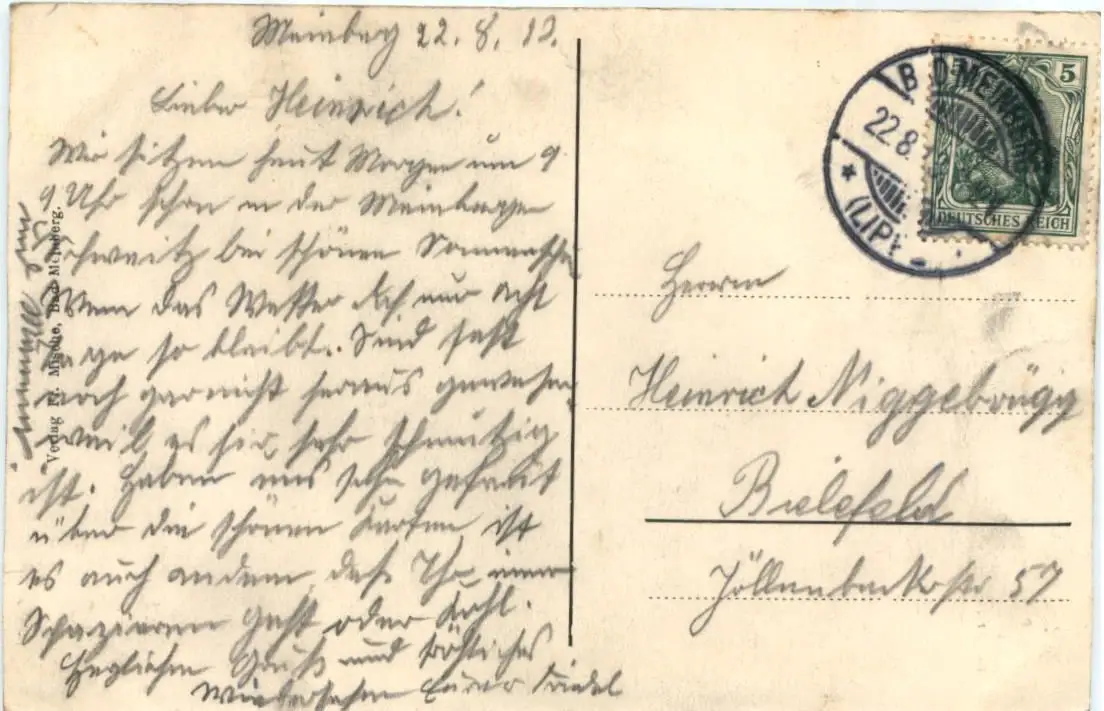 Meinberg 22. 8. 12.
Lieber Heinrich!
Wir sitzen heut Morgen um 9
9 Uhr schon in der Meinberger
Schweitz bei schönen Sonnenschein
Wenn das Wetter doch nur acht
Tage so bleibt. Sind fast
noch garnicht heraus gewesen
weil es hir sehr schmutzig
ist. Haben uns sehr gefreut
über die schönen Karten ist
es auch
Spazieren geht oder
Herzlichen Gruß und fröhliches
Wiedersehn Eurer Friedel
Verlag Fr. Mische, Bad Meinberg.
BAD MEINBERG
22.8.
(LIPPE)
5
DEUTSCHES REICH
Herrn
Heinrich Niggebrügg
Bielefeld
Jöllenbeckerstr 57